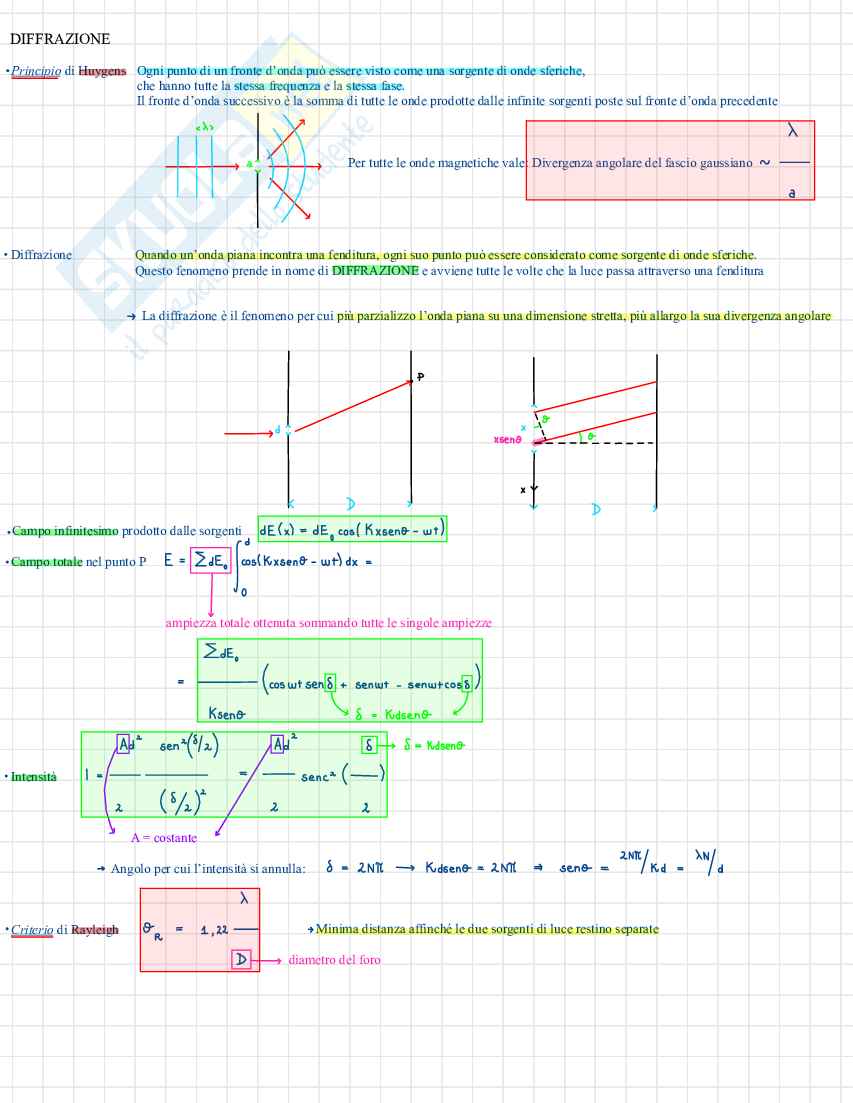 DIFFRAZIONE
• Principio di Huygens Ogni punto di un fronte d'onda può essere visto come una sorgente di onde sferiche,
che hanno tutte la stessa frequenza e la stessa fase.
Il fronte d'onda successivo è la somma di tutte le onde prodotte dalle infinite sorgenti poste sul fronte d'onda precedente
λ
a
Per tutte le onde magnetiche vale: Divergenza angolare del fascio gaussiano ~ λ/a
SKUOLA
il paradiso dello studente
• Diffrazione Quando un'onda piana incontra una fenditura, ogni suo punto può essere considerato come sorgente di onde sferiche.
Questo fenomeno prende in nome di DIFFRAZIONE e avviene tutte le volte che la luce passa attraverso una fenditura
→ La diffrazione è il fenomeno per cui più parzializzo l'onda piana su una dimensione stretta, più allargo la sua divergenza angolare
P
d
D
x
θ
xsenθ
θ
x
D
• Campo infinitesimo prodotto dalle sorgenti dE(x) = dE₀ cos(Kxsenθ - wt)
• Campo totale nel punto P E = ∑dE₀ ∫₀ᵈ cos(Kxsenθ - wt) dx =
ampiezza totale ottenuta sommando tutte le singole ampiezze
= ∑dE₀/Ksenθ (coswt senδ + senwt - senwtcosδ)
δ = Kdsenθ
• Intensità I = Ad²/2 sen²(δ/2)/(δ/2)² = Ad²/2 senc²(δ/2) → δ = Kdsenθ
A = costante
→ Angolo per cui l'intensità si annulla: δ = 2Nπ → Kdsenθ = 2Nπ ⇒ senθ = 2Nπ/Kd = λN/d
• Criterio di Rayleigh θR = 1,22 λ/D → Minima distanza affinché le due sorgenti di luce restino separate
→ diametro del foro